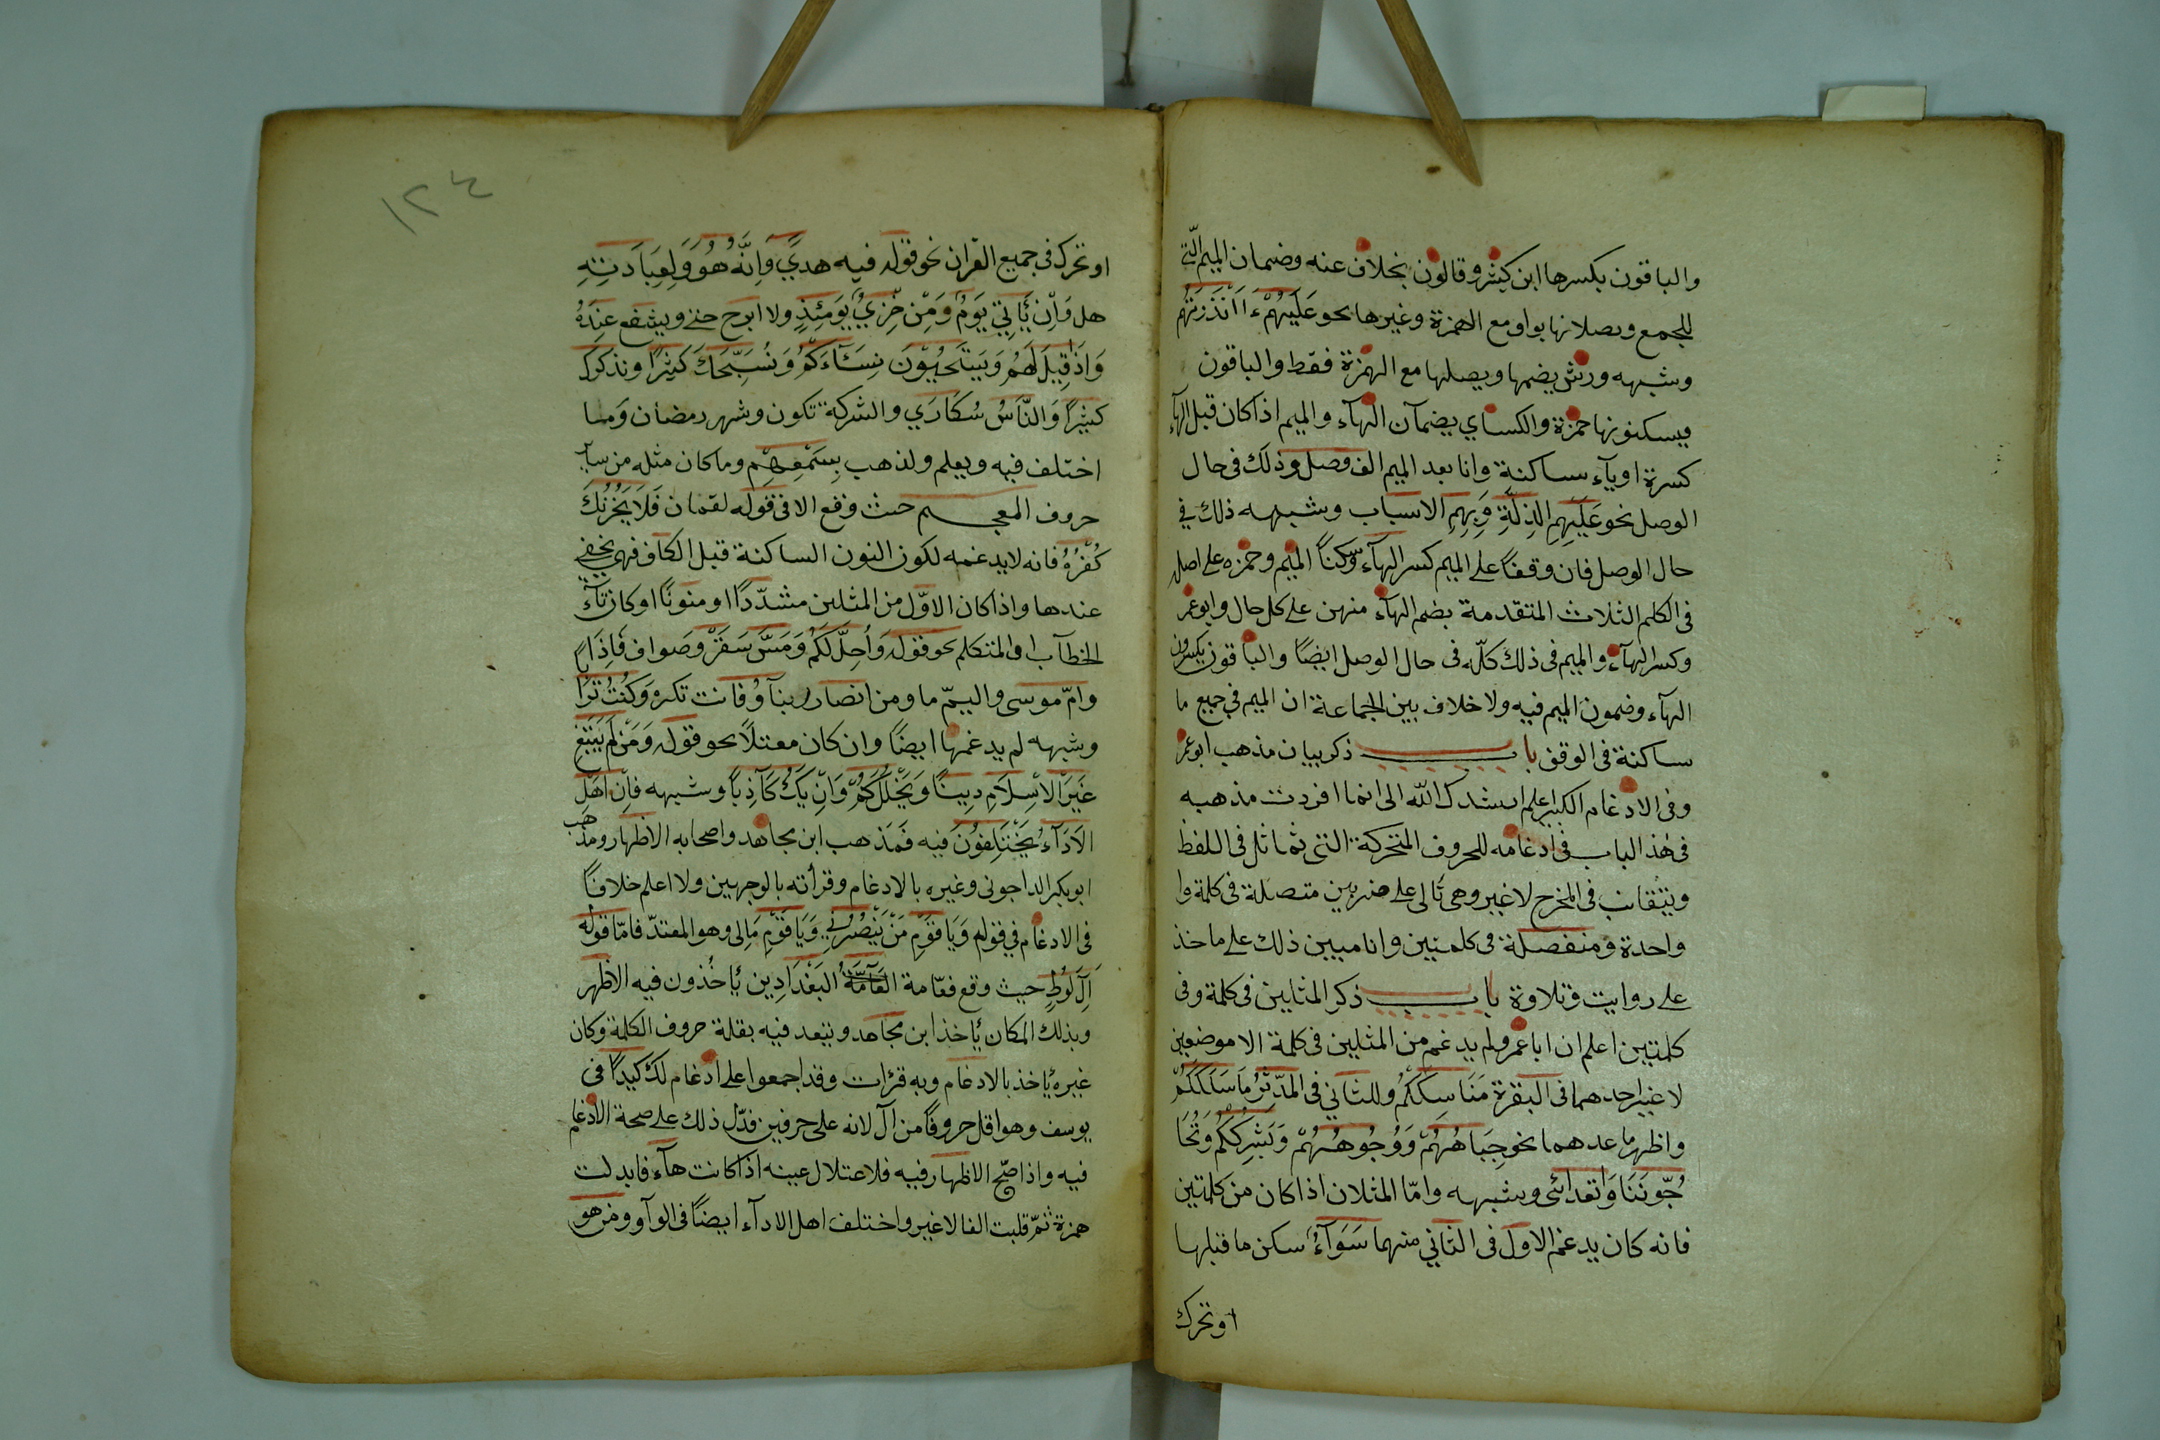 والباقون بكسرها ابن كثير وقالون بخلاف عنه وضمان الميم الّتي
للجمع ويصلانها بواو مع الهمزة وغيرها نحو عَلَيهُمْ ءَاَنْذَرتَهُم
وشبهه ورش يضمها ويصلها مع الهمزة فقط والباقون
يسكنونها حمزة والكساي يضمآن الهآء والميم اذا كان قبل الهآء
كسرة او يآء ساكنة وانا بعد الميم الف وصل وذلك في حال
الوصل نحو عَلَيهِمِ الذِلَّةِ وَبِهِمِ الاسباب وشبهه ذلك في
حال الوصل فان وقفنًا على الميم كسر الهآء وسكنًا الميم وحمزه على اصله
فى الكلم الثلاث المتقدمة بضم الهآء منهن على كل حال وابو عمر
وكسر الهآء والميم فى ذلك كلّه فى حال الوصل ايضًا والباقون يكسرون
الهآء وضمون الميم فيه ولا خلاف بين الجماعة ان الميم في جميع ما
ساكنة فى الوقف باب ذكر بيان مذهب ابو عمر
وفى الادغام الكبير اعلم ارشدك اللّه الى انما افردت مذهبه
فى هٰذا الباب فى ادغامه للحروف المتحركة التى تماثل فى اللفظ
ويتقانب فى المخرج لا غير وهى تالى على ضربين متصلة فى كلمة وا
واحدة ومنفصلة فى كلمتين وانا مبين ذلك على ما خذ
على روايت وتلاوة باب ذكر المثلين فى كلمة وفى
كلمتين اعلم ان ابا عمرو لم يدغم من المثلين فى كلمة الا موضعين
لا غير احدهما فى البقرة مَنَاسِكَكُمْ وللثانى فى المدّثر مَا سَلَكَكُمْ
واظهر ما عدهما نحو جِبَاهُهُمْ وَوُجُوهُهُمْ وَبَشِرِكِكُمْ وَتُحَا
جّونَنَا وَاتعدانني وشبهه وامّا المثلان اذا كان من كلمتين
فانه كان يدغم الاول فى الثاني منهما سَوَآءٌ سكن ما قبلها
او تحرك
١٢٤
او تحرك فى جميع القرآن نحو قوله فيه هدىً وَاِنَّهُ هُوَ وَلِعِبَادَتِهِ
هل وَاِنْ يَّاتِيَ يَومٌ وَمِنْ خِزيِ يَومَئِذٍ ولا ابرح حتى ويشفع عِندَهُ
وَاِذَا قِيلَ لَهُم وَيَستَحيُونَ نِسَآءَكُمْ وَنُسَبِّحَكَ كَثِيرًا ونذكرك
كثيرًا وَالنَّاسُ سُكَارَي والشركة تكون وشهر رمضان وَما
اختلف فيه ويعلم ولذهب بِسَمْعِهِم وما كان مثله من ساير
حروف المعجم حيث وقع الا فى قوله لقمان فَلَا يَحْزُنْكَ
كُفْرُهُ فانه لا يدغمه لكون النون الساكنة قبل الكاف فهى يخفى
عندها واذا كان الاوّل من المثلين مشدّدًا او منونًا او كان تآء
الخطآب او المتكلم نحو قوله وَاُحِلَّ لَكُمْ وَمَسَّ سَقَرْ وصواف فَاِذَا
وامّ موسى واليمّ ما ومن انصار ربنآ وفانت تكره وَكُنْتُ تُرَا
وشبهه لم يدغمها ايضًا وان كان معتلًّا نحو قوله وَمَنْ لَم يَبْتَغِ
غَيرَ الاِسْلَامِ دِينًا وَيَخْلُ لَكُمْ وَاِنْ يَكُ كَآذِبًا وشبهه فاِن اَهْلَ
الاَدَآءِ يَخْتَلِفُونَ فيه فَمَذهب ابن مجاهد واصحابه الاظهار ومذهب
ابو بكر الداجونى وغيره بالادغام وقرأته بالوجهين ولا اعلم خلافًا
فى الادغام في قوله وَيَا قَوْمِ مَنْ يَنْصُرُنِي وَيَا قَوْمِ مَالِى وهو المقتدّ فامّا قوله
آلَ لُوطٍ حيث وقع فعّامة البَغْدَادِين يأخُذون فيه الاظهر
وبذلك المكان يأخذ ابن مجاهد ويتعد فيه بقلة حروف الكلمة وكان
غيره ياخذ بالادغام وبه قرأت وقد اجمعوا على ادغام لك كيدًا فى
يوسف وهو اقل حروفًا من آل لانه على حرفين فدّل ذلك على صحة الادغام
فيه واذا صّح الاظهار فيه فلاعتلال عينه اذا كانت هآء فابدلت
همزة ثمّ قلبت الفا لا غير واختلف اهل الادآء ايضًا فى الوآو ومن هو